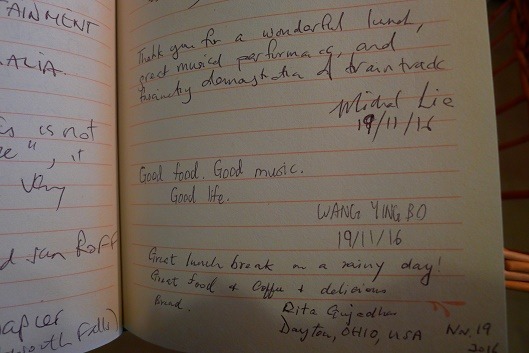 AINMENT
ALIA.
is not
e", it
very
d san Roff
apier
south Falls)
Thank you for a wonderful lunch,
great musical performances, and
fascinating demonstration of train track
Michael Lie
19/11/16
Good food. Good music.
Good life.
WANG YING BO
19/11/16
Great lunch break on a rainy day!
Great food & Coffee & delicious
Bread.
Rita
Dayton, OHIO, USA
Nov. 19
2016